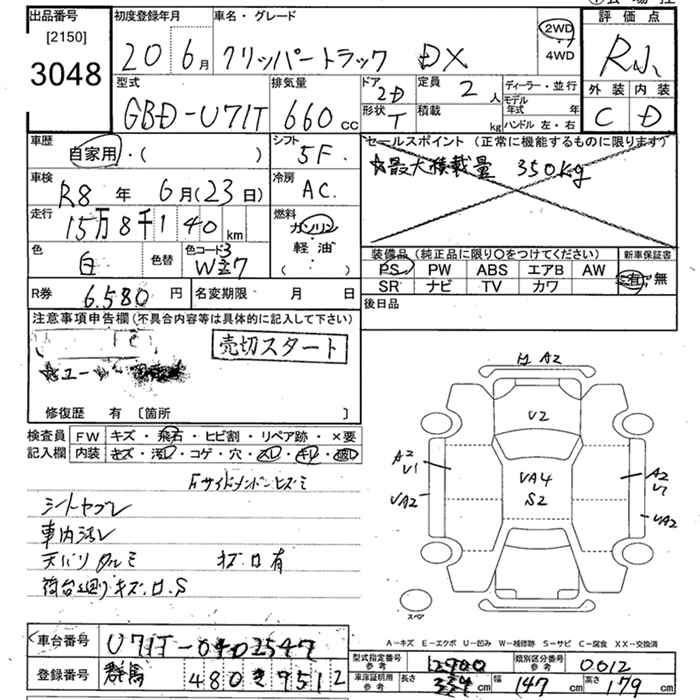 出品番号
[2150]
3048
初度登録年月
20 6月
車名・グレード
クリッパートラック DX
2WD
4WD
評価点
R
外装 内装
C D
型式
GBD-U71T
排気量
660 cc
ドア
2D
形状
T
定員
2 人
積載
kg
ディーラー・並行
モデル
年式 年
ハンドル 左・右
車歴
自家用・( )
シフト
5F
セールスポイント (正常に機能するものに限ります)
☆最大積載量 350kg
車検
R8 年 6月(23日)
冷房
AC
走行
15万8千140 km
燃料
ガソリン
軽油
( )
色
白
色替
色コード
装備品 (純正品に限り〇をつけてください)
新車保証書
PS PW ABS エアB AW
SR ナビ TV カワ
有・無
R券 6.580 円
名変期限 月 日
後日品
注意事項申告欄 (不具合内容等は具体的に記入して下さい)
売切スタート
修復歴 有 〔箇所 〕
検査員
記入欄
FW キズ・飛石・ヒビ割・リペア跡・×要
内装 キズ・汚レ・コゲ・穴・スレ・キレ・破レ
シートヤブレ
車内汚レ
天バリタルミ
キズ・ロ有
A2
V2
A2
V1
VA2
VA4
S2
A2
V1
VA2
スペア
A-キズ E-エクボ U-凹み W-補修跡 S-サビ C-腐食 XX-交換済
車台番号
U71T-0402547
登録番号
群馬 480 き 9512
型式指定番号
参考
12900
類別区分番号
参考
0012
車庫証明用
参考
長さ
幅 147 cm
高さ 179 cm